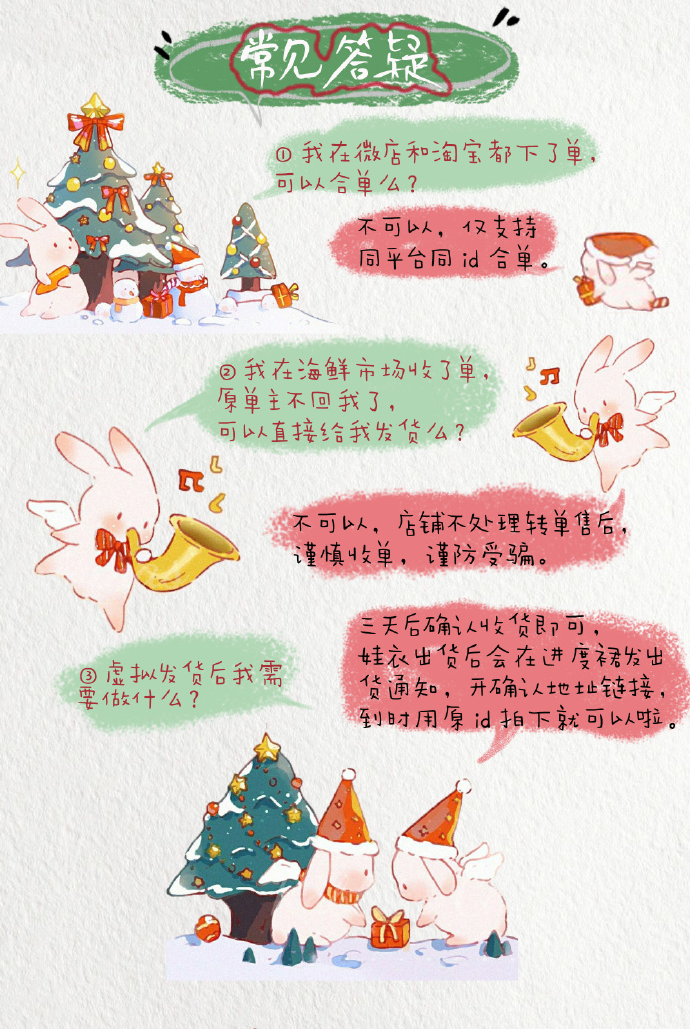 常见答疑
① 我在微店和淘宝都下了单，
可以合单么？
不可以，仅支持
同平台同id合单。
② 我在海鲜市场收了单，
原单主不回我了，
可以直接给我发货么？
不可以，店铺不处理转单售后，
谨慎收单，谨防受骗。
③ 虚拟发货后我需
要做什么？
三天后确认收货即可，
娃衣出货后会在进度裙发出
货通知，开确认地址链接，
到时用原id拍下就可以啦。